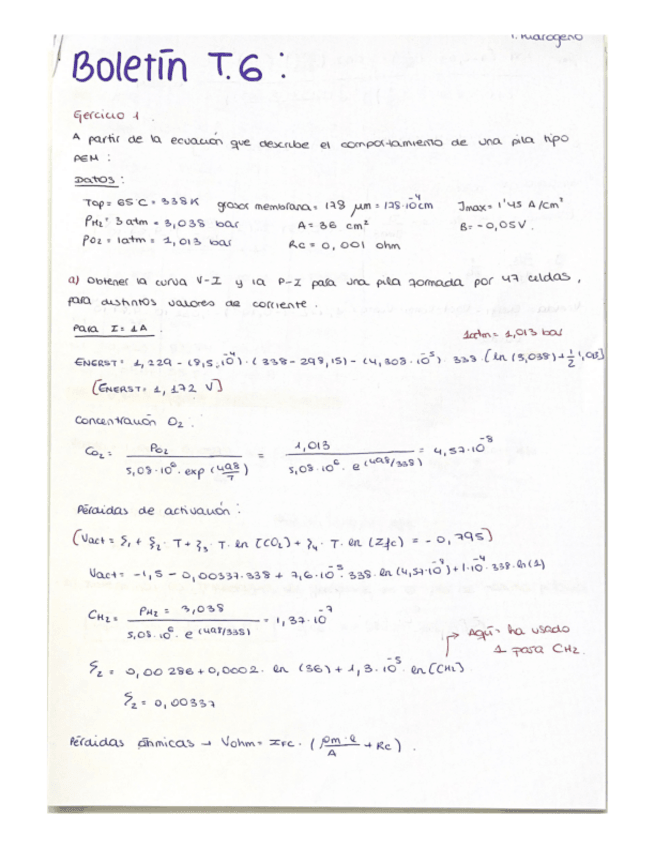 T. Hidrógeno
Boletín T.6:
Ejercicio 1.
A partir de la ecuación que describe el comportamiento de una pila tipo
PEM:
Datos:
Top = 65°C = 338K grosor membrana = 178 μm = 178·10⁻⁴cm Jmax = 1'45 A/cm²
PH₂ = 3 atm = 3,038 bar A = 36 cm² B = -0,05V.
PO₂ = 1atm = 1,013 bar Rc = 0,001 ohm
a) Obtener la curva V-I y la P-I para una pila formada por 47 celdas,
para distintos valores de corriente.
Para I = 1A.
1atm = 1,013 bar
ENERST = 1,229 - (8,5·10⁻⁴)·(338-298,15) - (4,308·10⁻⁵)· 338·[ln (3,038) + 1/2 1,013]
[ENERST = 1,172 V]
Concentración O₂:
CO₂ = PO₂ / 5,08·10⁶·exp(498/T) = 1,013 / 5,08·10⁶·e^(498/338) = 4,57·10⁻⁸
Pérdidas de activación:
(Vact = ξ₁ + ξ₂·T + ξ₃·T·ln [CO₂] + ξ₄·T·ln (Ifc) = -0,795)
Vact = -1,5 - 0,00337·338 + 7,6·10⁻⁵·338·ln(4,57·10⁻⁸) + 1·10⁻⁴·338·ln(1)
CH₂ = PH₂ = 3,038 / 5,08·10⁶·e^(498/338) = 1,37·10⁻⁷
→ Aquí ha usado
1 para CH₂.
ξ₂ = 0,00286 + 0,0002·ln (36) + 1,3·10⁻⁵·ln [CH₂]
ξ₂ = 0,00337
Pérdidas óhmicas → Vohm = IFC·(ρm·l / A + Rc).